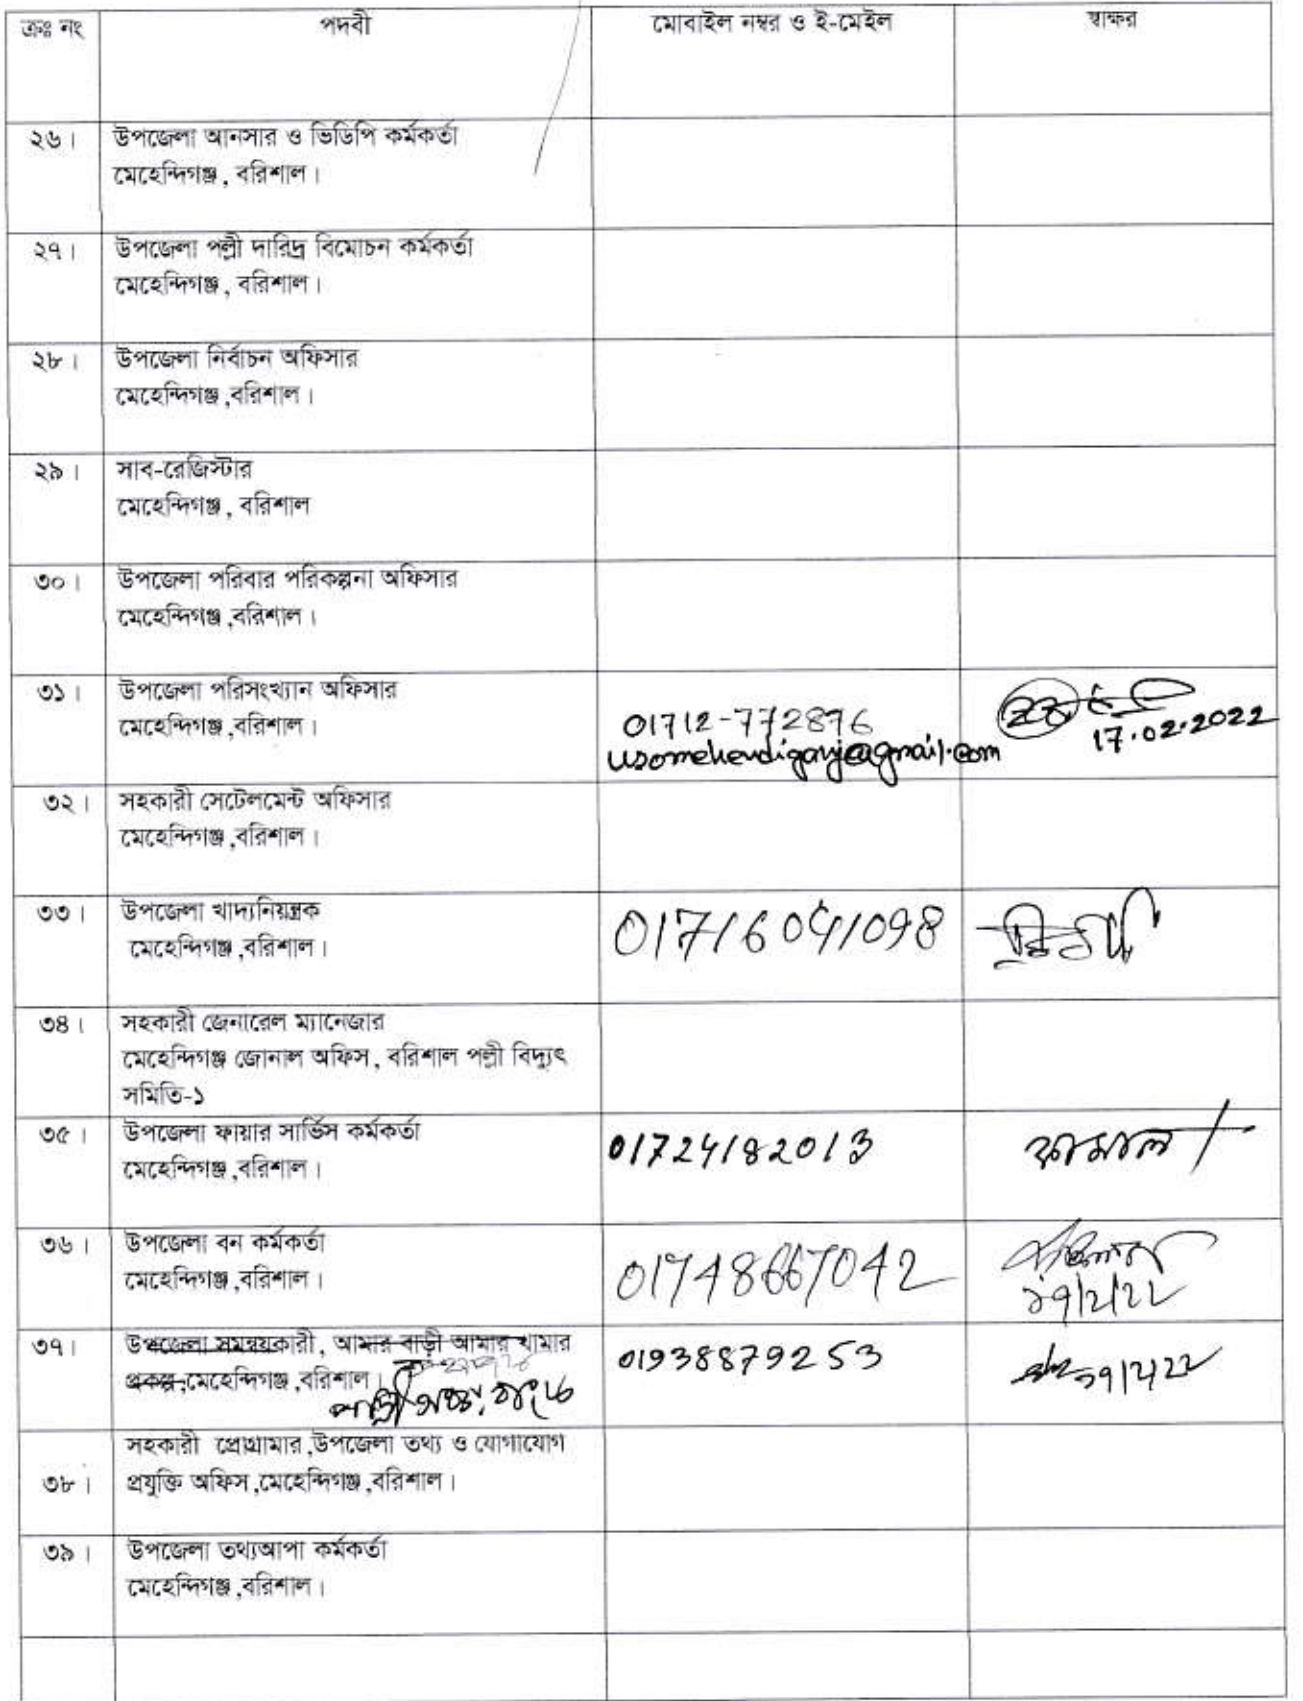 ক্রঃ নং পদবী মোবাইল নম্বর ও ই-মেইল স্বাক্ষর
২৬। উপজেলা আনসার ও ভিডিপি কর্মকর্তা
মেহেন্দিগঞ্জ, বরিশাল।
২৭। উপজেলা পল্লী দারিদ্র বিমোচন কর্মকর্তা
মেহেন্দিগঞ্জ, বরিশাল।
২৮। উপজেলা নির্বাচন অফিসার
মেহেন্দিগঞ্জ,বরিশাল।
২৯। সাব-রেজিস্টার
মেহেন্দিগঞ্জ, বরিশাল
৩০। উপজেলা পরিবার পরিকল্পনা অফিসার
মেহেন্দিগঞ্জ,বরিশাল।
৩১। উপজেলা পরিসংখ্যান অফিসার
মেহেন্দিগঞ্জ,বরিশাল। 01712-772876 17.02.2022
usomehendiganj@gmail.com
৩২। সহকারী সেটেলমেন্ট অফিসার
মেহেন্দিগঞ্জ,বরিশাল।
৩৩। উপজেলা খাদ্যনিয়ন্ত্রক
মেহেন্দিগঞ্জ,বরিশাল। 01716041098
৩৪। সহকারী জেনারেল ম্যানেজার
মেহেন্দিগঞ্জ জোনাল অফিস, বরিশাল পল্লী বিদ্যুৎ
সমিতি-১
৩৫। উপজেলা ফায়ার সার্ভিস কর্মকর্তা
মেহেন্দিগঞ্জ,বরিশাল। 01724182013 কামাল
৩৬। উপজেলা বন কর্মকর্তা
মেহেন্দিগঞ্জ,বরিশাল। 01748667042 ১৭/2/22
৩৭। উপজেলা সমন্বয়কারী, আমার বাড়ী আমার খামার
প্রকল্প,মেহেন্দিগঞ্জ,বরিশাল। 01938879253 ১৭/2/22
পল্লী সঞ্চয় ব্যাংক
সহকারী প্রোগ্রামার,উপজেলা তথ্য ও যোগাযোগ
৩৮। প্রযুক্তি অফিস,মেহেন্দিগঞ্জ,বরিশাল।
৩৯। উপজেলা তথ্যআপা কর্মকর্তা
মেহেন্দিগঞ্জ,বরিশাল।